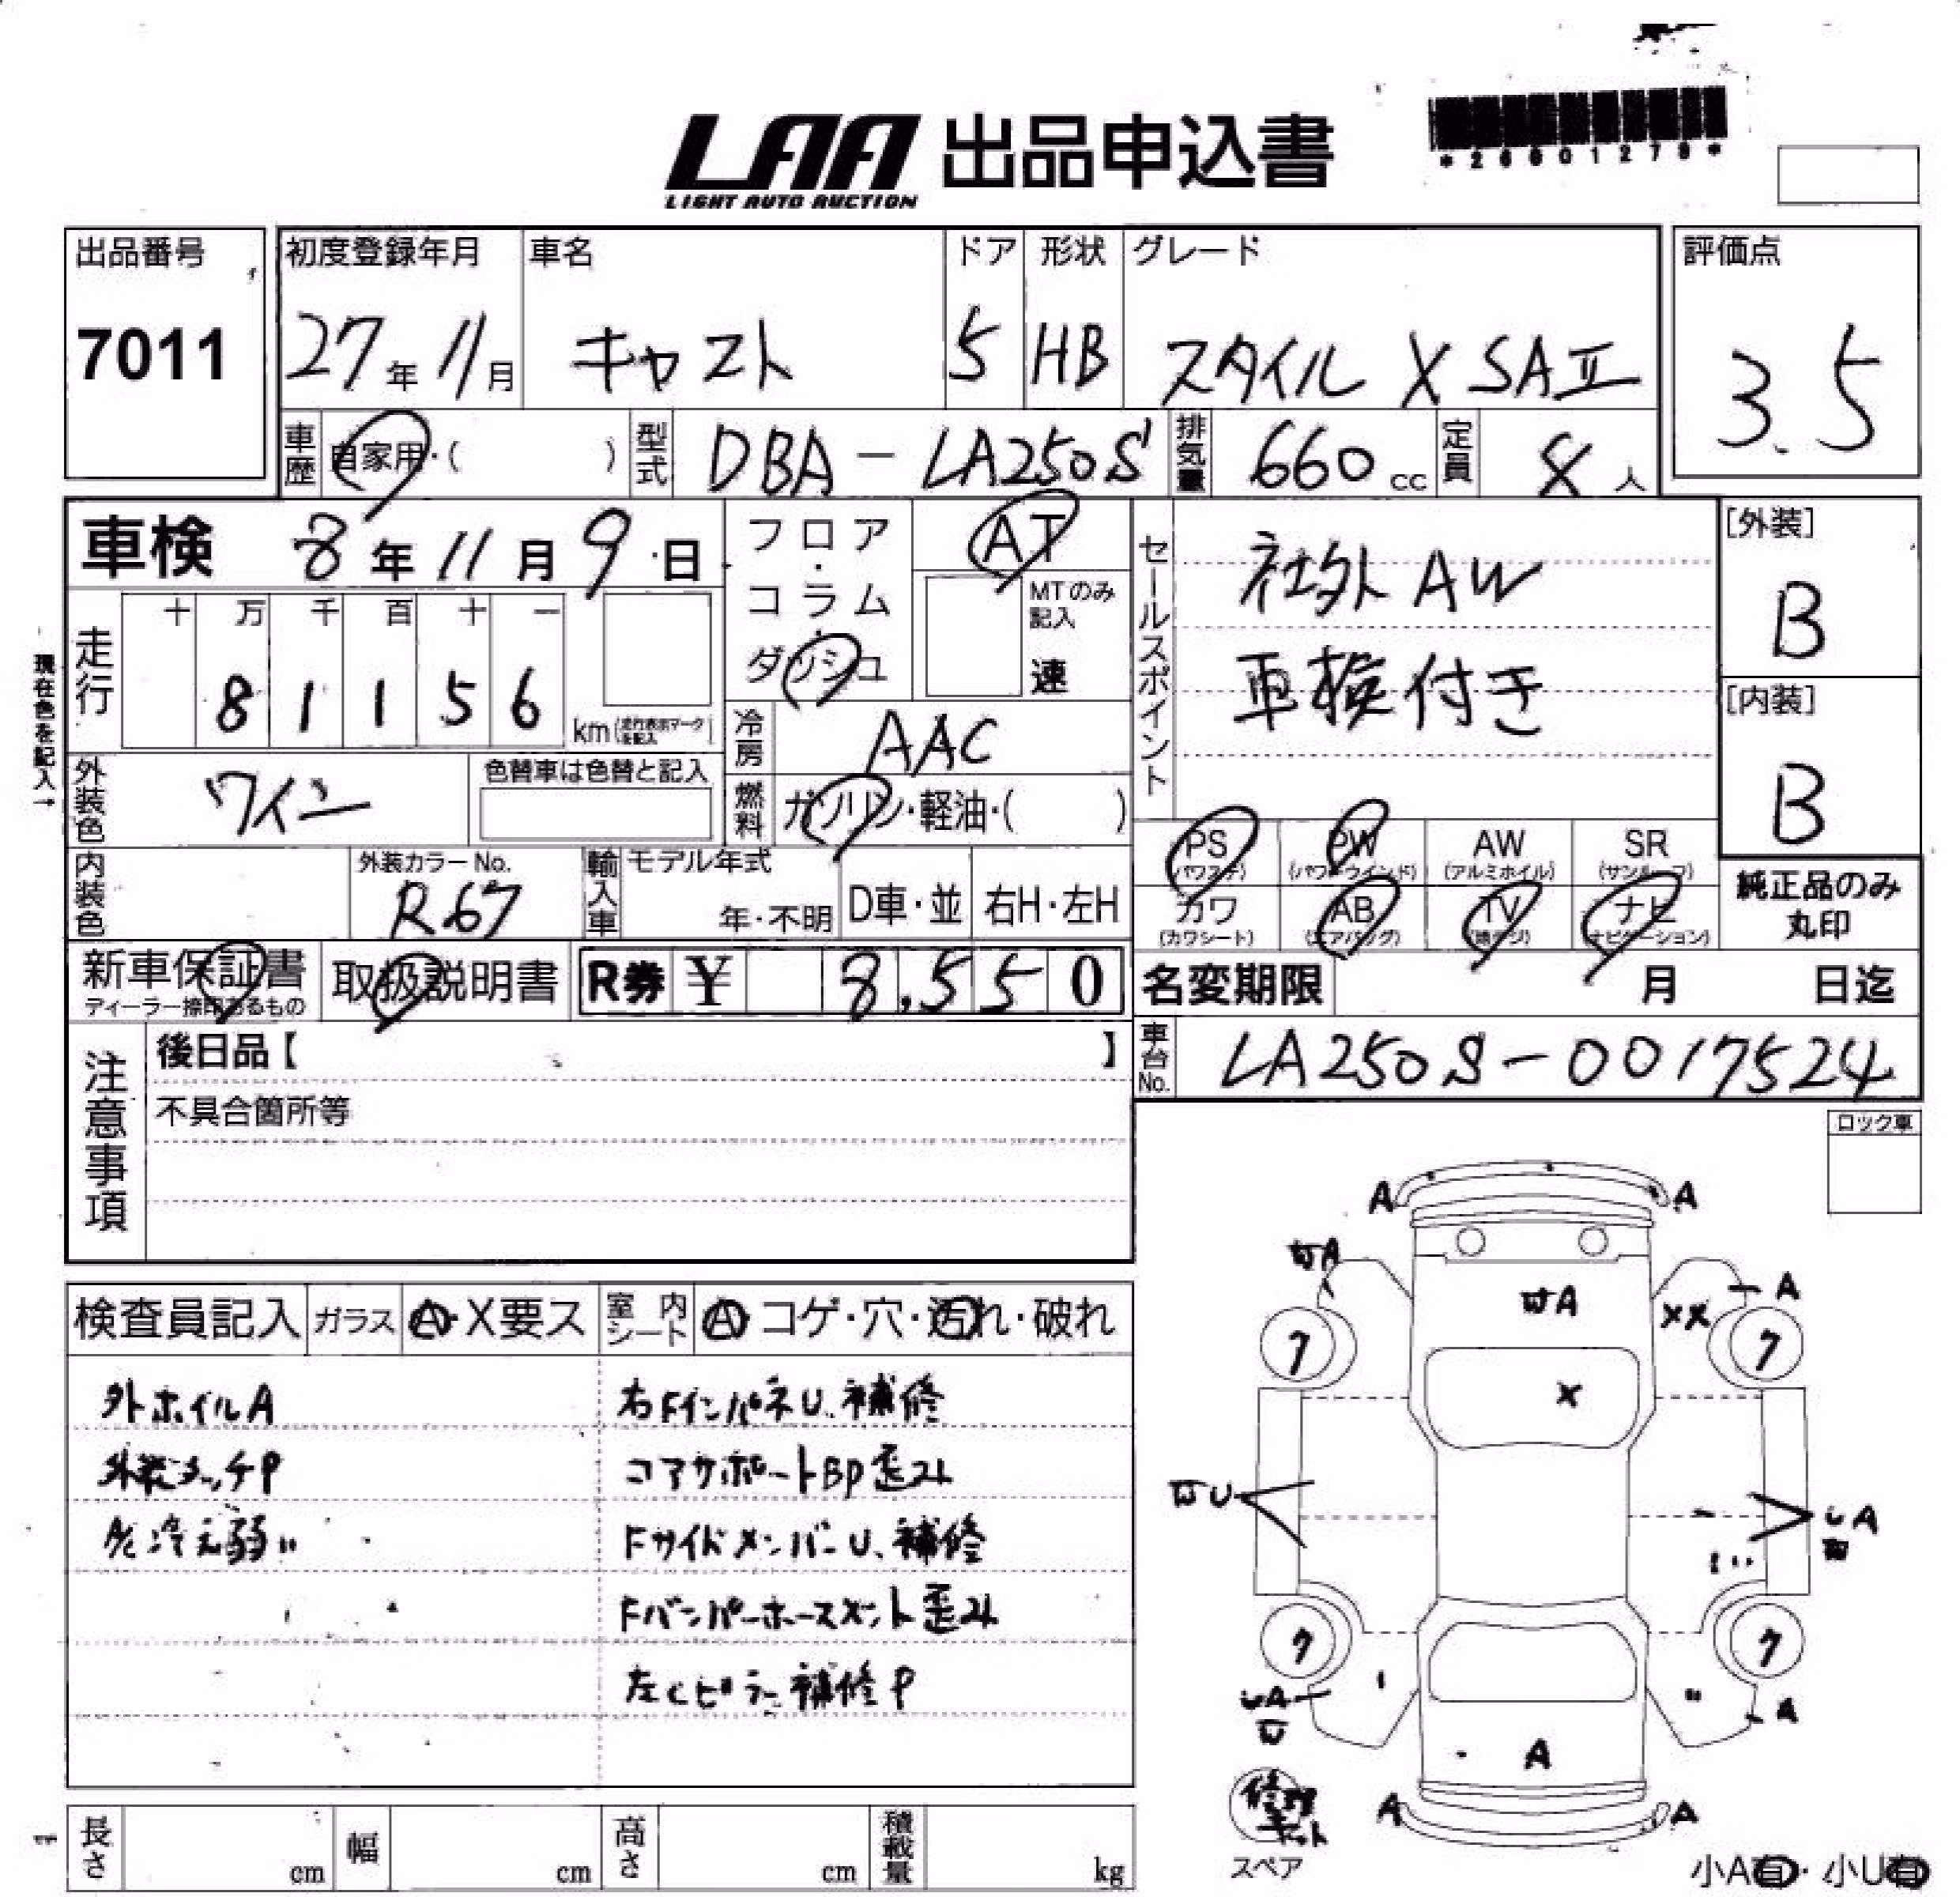 *26601279*
LAA 出品申込書
LIGHT AUTO AUCTION
出品番号
7011
初度登録年月
27年11月
車名
キャスト
ドア
5
形状
HB
グレード
スタイル X SAⅡ
評価点
3.5
車歴 自家用・( )
型式 DBA-LA250S
排気量 660cc
定員 人
車検 8年11月9日
フロア・コラム・ダッシュ
AT
MTのみ記入
速
セールスポイント
社外AW
車検付き
[外装]
B
[内装]
B
現在色を記入→
走行
十 万 千 百 十 一
8 1 1 5 6
km(走行表示マークを記入)
冷房 AAC
外装色 ワイン
色替車は色替と記入
燃料 ガソリン・軽油・( )
PS (パワステ)
PW (パワーウインド)
AW (アルミホイル)
SR (サンルーフ)
カワ (カワシート)
AB (エアバッグ)
TV (地デジ)
ナビ (ナビゲーション)
純正品のみ丸印
内装色
外装カラーNo.
R67
輸入車
モデル年式
年・不明
D車・並
右H・左H
新車保証書
ディーラー捺印あるもの
取扱説明書
R券 ¥ 8,550
名変期限 月 日迄
車台No. LA250S-0017524
注意事項
後日品【 】
不具合箇所等
ロック車
検査員記入
ガラス A・X要ス
室内シート A コゲ・穴・汚れ・破れ
外ホイルA
外装タッチP
A/C冷え弱い
右FインパネU、補修
コアサポートBP歪み
FサイドメンバーU、補修
Fバンパーホースメント歪み
左Cピラー補修P
A A
A A
A XX
7 7
X
U
A
7 7
A
A
A
A A
修理キット
スペア
長さ cm
幅 cm
高さ cm
積載量 kg
小A有・小U有